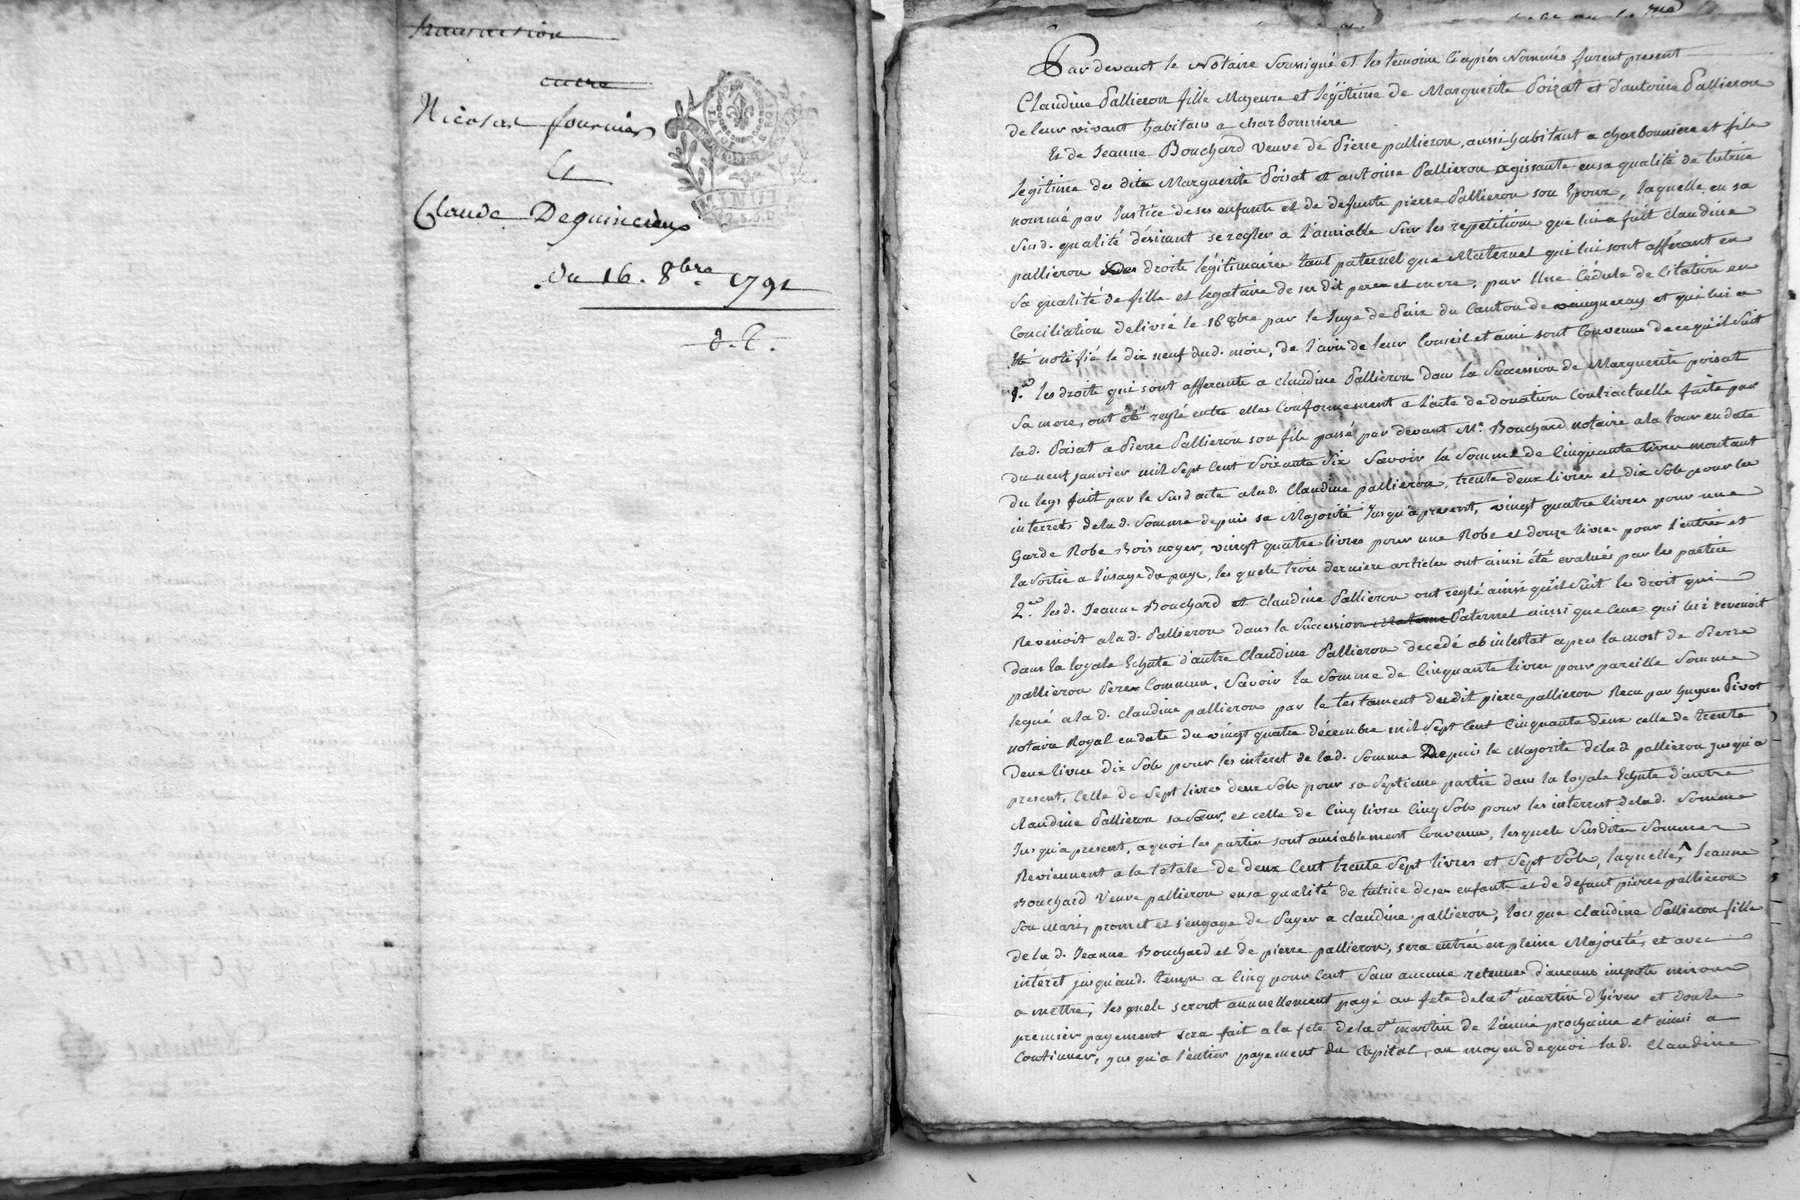 Transaction
entre
Nicolas fournier
Et
Claude Dequincieux
du 16. 8bre 1791
d. T.
MINUT
Par devant le Notaire Soussigné et les temoins Ci après Nommés furent present
Claudine Pallieron fille Majeure et légitime de Marguerite Poizat et d'antoine Pallieron
de leur vivant habitans a charbonniere
Et de Jeanne Bouchard veuve de Pierre pallieron, aussi habitant a charbonniere et fils
legitime des dits Marguerite Poisat et antoine Pallieron agissante en sa qualité de tutrice
nommé par Justice de ses enfants et de defunt pierre Pallieron son Epoux, laquelle en sa
susd. qualité désirant se regler a l'amiable sur les repetitions que lui a fait claudine
pallieron Des droits légitimaires tant paternel que Maternel qui lui sont afférant en
sa qualité de fille et legataire de ses dit pere et mere, par Une Cédule de Citation en
Conciliation delivré le 16 8bre par le Juge de Paix du Canton de vaugneray et qui lui a
Eté notifié le dix neuf dud. mois, de l'avis de leur Conseil et ami sont Convenus de ce qu'il suit
1.° les droits qui sont afferants a claudine Pallieron dans la Succession de Marguerite poisat
sa mere, ont été reglé entre elles Conformement a l'acte de donation Contractuelle faite par
lad. Poisat a Pierre Pallieron son fils passé par devant Me Bouchard notaire a la tour en date
du neuf janvier mil Sept Cent Soixante Six Savoir la Somme de Cinquante livres montant
du legs fait par le susd acte a lad. Claudine pallieron, trente deux livres et dix Sols pour les
interrets de lad. Somme depuis sa Majorité Jusqu'a present, vingt quatre livres pour une
Garde Robe Bois noyer, vingt quatre livres pour une Robe et douze livres pour l'entrée et
la Sortie a l'usage du pays, les quels trois derniers articles ont ainsi été evalués par les parties
2.° lesd. Jeanne Bouchard et claudine Pallieron ont reglé ainsi qu'il suit les droit qui
Revenoit a lad. Pallieron dans la Succession Materne Paternel ainsi que Ceux qui lui revenoit
dans la loyale Echute d'autre Claudine Pallieron decedé ab intestat apres la mort de Pierre
pallieron Pere Commun, Savoir la Somme de Cinquante livres pour pareille Somme
legué a la d. claudine pallieron par le testament dudit pierre pallieron Recu par hugues Pivot
notaire Royal en date du vingt quatre décembre mil Sept Cent Cinquante deux celle de trente
deux livres dix Sols pour les interet de lad. Somme Depuis la Majorité de lad pallieron jusqu'a
present, Celle de Sept livres deux Sols pour sa Septieme partie dans la loyale Echute d'autre
claudine Pallieron sa Sœur, et celle de Cinq livres Cinq Sols pour les interrest de lad. Somme
Jusqu'a present, a quoi les parties sont amiablement Convenus, lesquels Susdites Sommes
Reviennent a la totale de deux Cent trente Sept livres et Sept Sols, laquelle, ^ Jeanne
Bouchard Veuve pallieron en sa qualité de tutrice de ses enfants et de defunt pierre pallieron
Son Mari, promet et s'engage de Payer a claudine pallieron, lorsque claudine Pallieron fille
de la d. Jeanne Bouchard et de pierre pallieron, sera entrée en pleine Majorité, et avec
intéret jusqu'aud. temps a Cinq pour Cent Sans aucune retenues d'aucuns impots mis ou
a mettre, les quels seront annuellement payé au fete de la St martin d'hiver et dont le
premier payement sera fait a la fete de la St martin de l'année prochaine et ainsi a
Continuer, jusqu'a l'entier payement du Capital, au moyen de quoi lad. Claudine